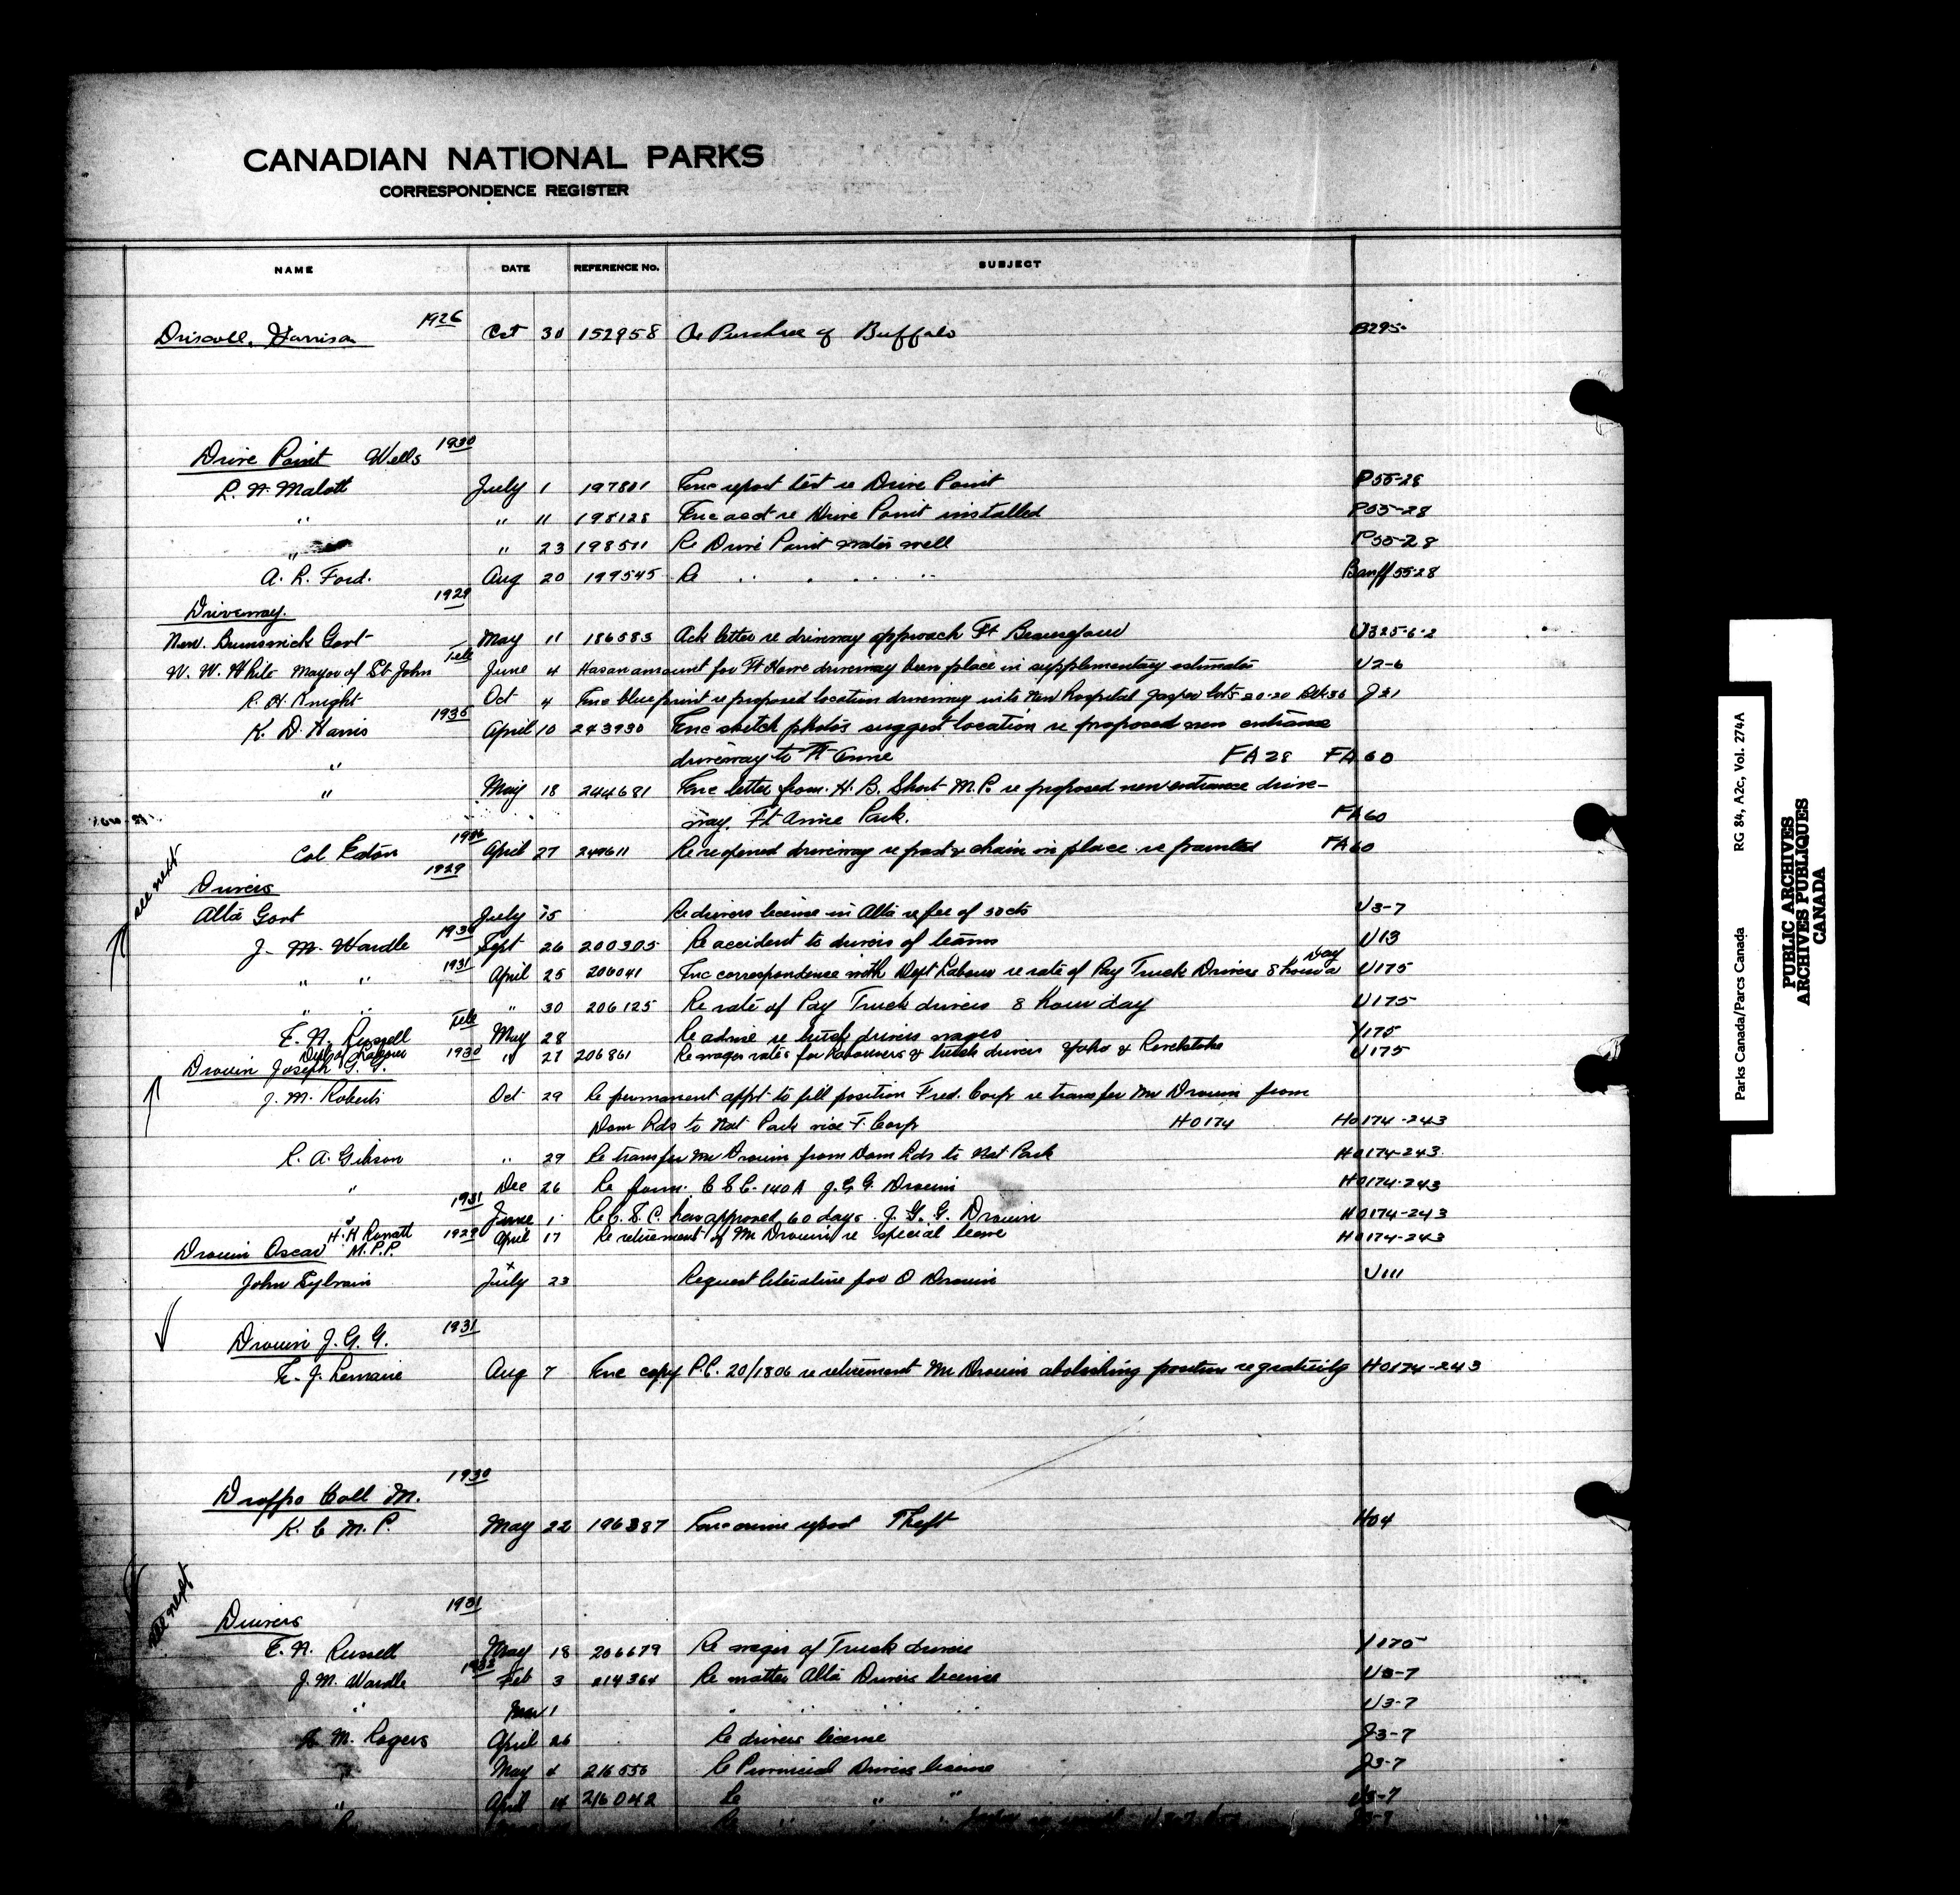 CANADIAN NATIONAL PARKS
CORRESPONDENCE REGISTER
NAME DATE REFERENCE No. SUBJECT
Driscoll, Harrison 1926 Oct 30 152958 Re Purchase of Buffalo B295
Drive Point Wells 1930
L. H. Malott July 1 197801 Enc report test re Drive Point P55-28
" " 11 198128 Enc acct re Drive Point installed P55-28
" " 23 198511 Re Drive Point water well P55-28
A. L. Ford. Aug 20 199545 Re " " " " Banff 55-28
Driveway. 1929
New. Brunswick Govt May 11 186583 Ack letter re driveway approach Ft Beausejour U325-6-2
W. W. White Mayor of St John Tele June 4 Has an amount for Ft Howe driveway been place in supplementary estimates U2-6
R. H. Knight Oct 4 Enc blue print re proposed location driveway into New Hospital Jasper lots 20-20 Blk 36 J21
K. D. Harris 1935 April 10 243930 Enc sketch photos suggest location re proposed new entrance
" driveway to Ft Anne FA28 FA60
" May 18 244681 Enc letter from H. B. Short M.P. re proposed new entrance drive-
way. Ft Anne Park. FA60
Col Eaton 1936 April 27 249611 Re reopened driveway re post & chain in place re painted FA60
see next
Drivers 1929
Alta Govt July 15 Re drivers license in Alta re fee of 50 cts U3-7
J. M. Wardle 1930 Sept 26 200305 Re accident to drivers of teams U13
" " 1931 April 25 206041 Enc correspondence with Dept Labour re rate of Pay Truck Drivers 8 hours a day U175
" " " 30 206125 Re rate of Pay Truck drivers 8 hour day U175
E. N. Russell Tele May 28 Re advise re truck drivers wages Y175
Dept of Labour " 27 206861 Re wages rates for Labourers & truck drivers Yoho & Revelstoke U175
Drouin Joseph G. G. 1930
J. M. Roberts Oct 29 Re permanent appt to fill position Fred. Corp re transfer Mr Drouin from
Dom Lds to Nat Park vice F. Corp H0174 H0174-243
R. A. Gibson " 29 Re transfer Mr Drouin from Dom Lds to Nat Park H0174-243
" Dec 26 Re form C S C-140A J. G. G. Drouin H0174-243
" 1931 June 1 Re C. S. C. have approved 60 days J. G. G. Drouin H0174-243
H. H. Rowatt April 17 Re retirement of Mr Drouin re special leave H0174-243
Drouin Oscar M.P.P. 1929
John Sylvain July 23 Request literature for O Drouin U111
Drouin J. G. G. 1931
E. J. Lemaire Aug 7 Enc copy P.C. 20/1806 re retirement Mr Drouin abolishing position re gratuity H0174-243
Droppo Coll M. 1930
R. C. M. P. May 22 196387 Enc crime report Theft H04
see next
Drivers 1931
E. N. Russell May 18 206679 Re wages of Truck drivers Y175
J. M. Wardle 1932 Feb 3 214364 Re matter Alta Drivers license U3-7
" Mar 1 " " " " U3-7
M. Rogers April 26 Re drivers license J3-7
" May 4 216556 Re Provincial Drivers license J3-7
" April 14 216042 Re " " U3-7
Parks Canada/Parcs Canada RG 84, A2c, Vol. 274A
PUBLIC ARCHIVES
ARCHIVES PUBLIQUES
CANADA